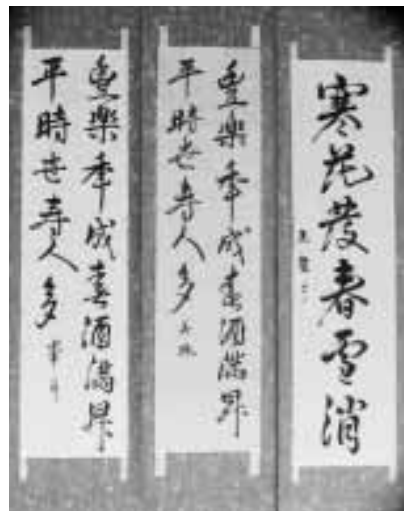 寒花發春雪消
豊樂年成春酒満昇
平時世寿人多
豊樂年成春酒満昇
平時世寿人多